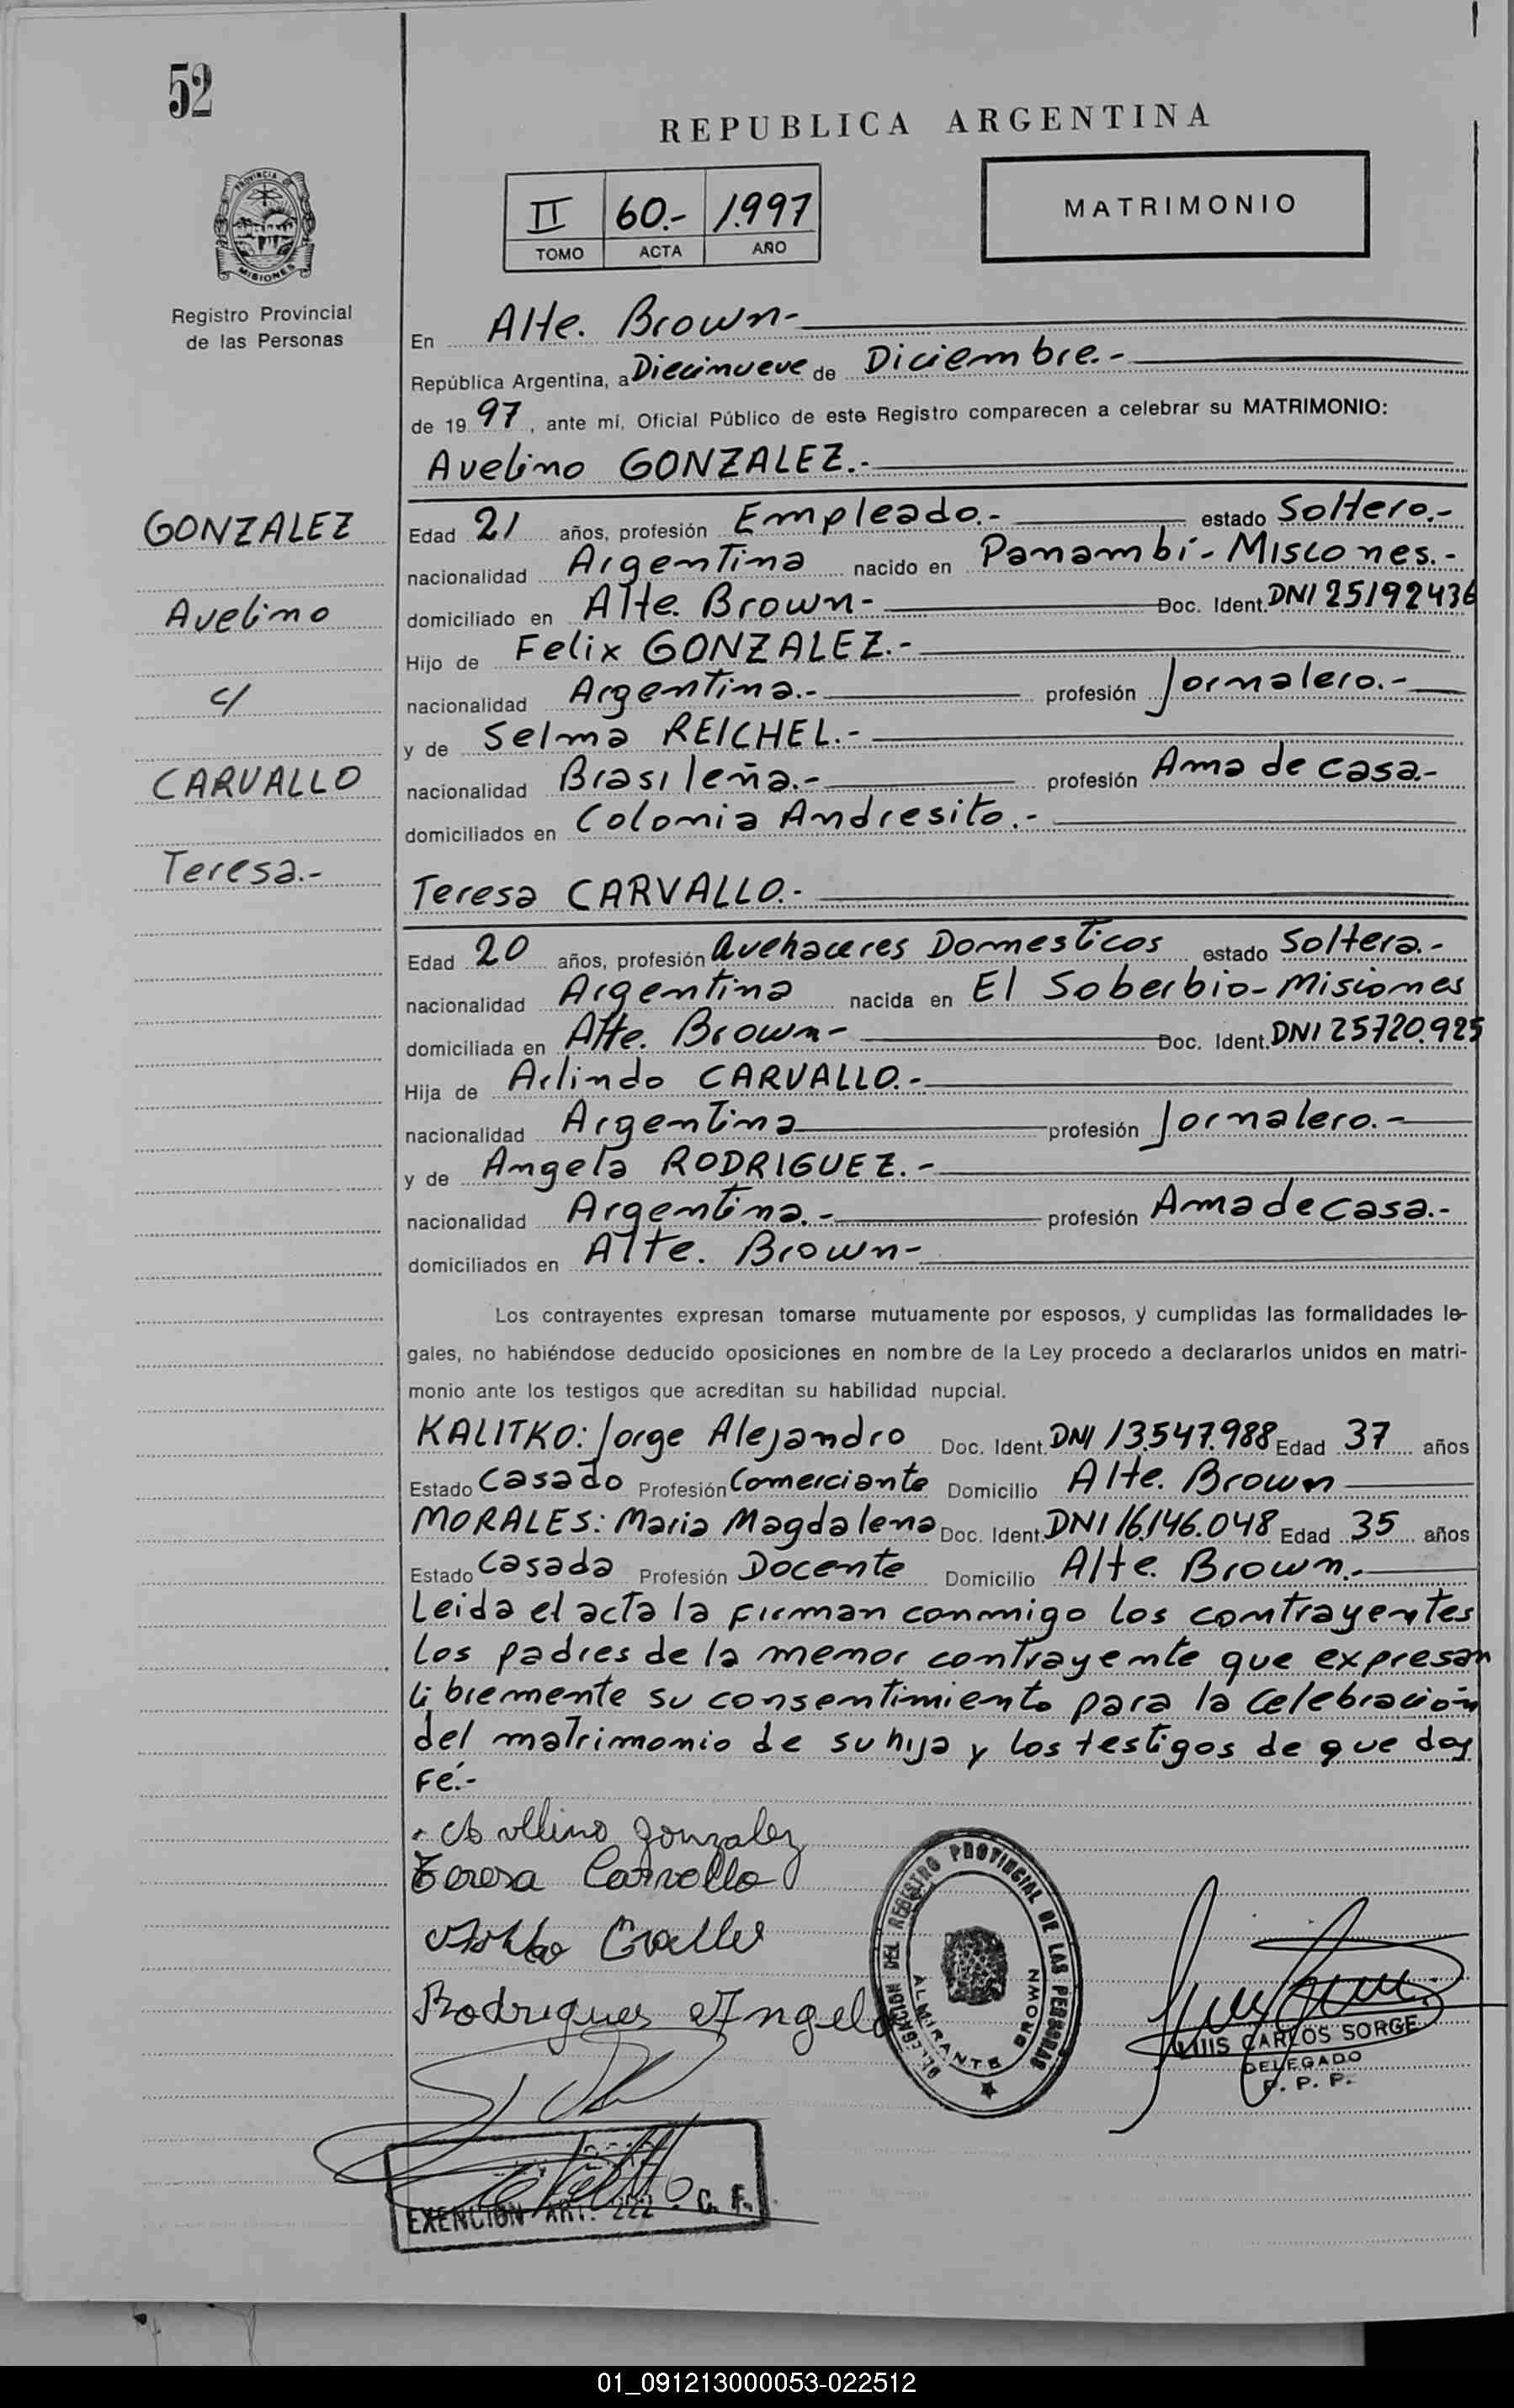 52
REPUBLICA ARGENTINA
PROVINCIA DE
MISIONES
Registro Provincial
de las Personas
II 60.- 1.997
TOMO ACTA AÑO
MATRIMONIO
En Alte. Brown-
República Argentina, a Diecinueve de Diciembre.-
de 19 97, ante mí, Oficial Público de este Registro comparecen a celebrar su MATRIMONIO:
Avelino GONZALEZ.-
GONZALEZ
Avelino
c/
CARVALLO
Teresa.-
Edad 21 años, profesión Empleado.- estado Soltero.-
nacionalidad Argentina nacido en Panambí-Misiones.-
domiciliado en Alte. Brown- Doc. Ident. DNI 25192436
Hijo de Felix GONZALEZ.-
nacionalidad Argentina.- profesión Jornalero.-
y de Selma REICHEL.-
nacionalidad Brasileña.- profesión Ama de casa.-
domiciliados en Colonia Andresito.-
Teresa CARVALLO.-
Edad 20 años, profesión Quehaceres Domesticos estado Soltera.-
nacionalidad Argentina nacida en El Soberbio-Misiones
domiciliada en Alte. Brown- Doc. Ident. DNI 25720.925
Hija de Arlindo CARVALLO.-
nacionalidad Argentina profesión Jornalero.-
y de Angela RODRIGUEZ.-
nacionalidad Argentina.- profesión Ama de casa.-
domiciliados en Alte. Brown-
Los contrayentes expresan tomarse mutuamente por esposos, y cumplidas las formalidades le-
gales, no habiéndose deducido oposiciones en nombre de la Ley procedo a declararlos unidos en matri-
monio ante los testigos que acreditan su habilidad nupcial.
KALITKO: Jorge Alejandro Doc. Ident. DNI 13.547.988 Edad 37 años
Estado Casado Profesión Comerciante Domicilio Alte. Brown
MORALES: Maria Magdalena Doc. Ident. DNI 16.146.048 Edad 35 años
Estado Casada Profesión Docente Domicilio Alte. Brown.-
Leida el acta la firman conmigo los contrayentes
los padres de la menor contrayente que expresan
libremente su consentimiento para la celebración
del matrimonio de su hija y los testigos de que doy
Fé.-
Avelino Gonzalez
Teresa Carvallo
Rodrigues Angela
DELEGACION DEL REGISTRO PROVINCIAL DE LAS PERSONAS
ALMIRANTE BROWN
LUIS CARLOS SORGE
DELEGADO
R. P. P.
EXENCION ART. 222 C. F.
01_091213000053-022512